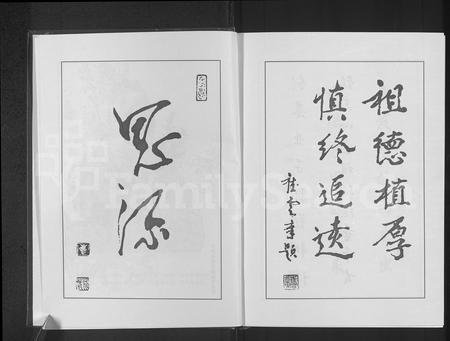 祖德植厚
慎終追遠
思源
FamilySearch